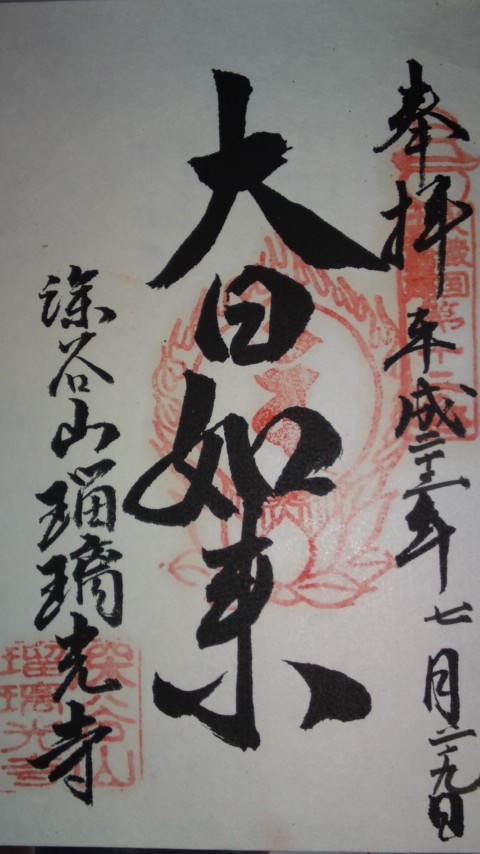 奉拝 平成二十三年七月二十九日
大日如来
深谷山瑠璃光寺
深谷山
瑠璃光寺